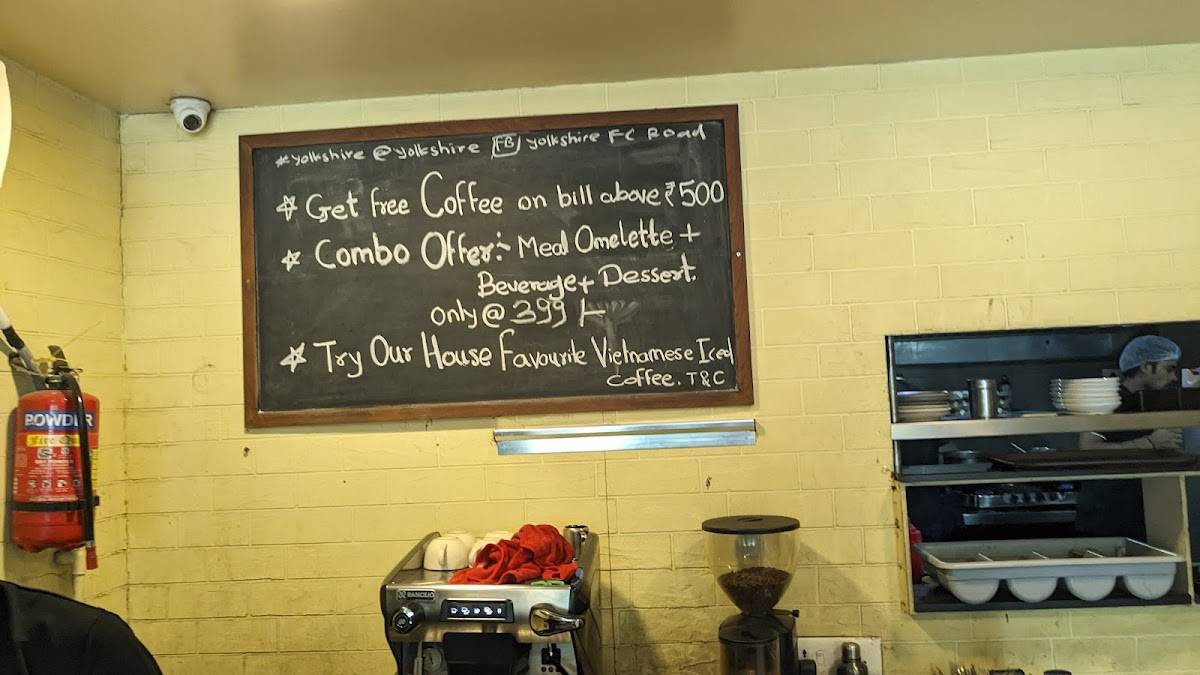 #yolkshire @yolkshire FB yolkshire FC Road
Get free Coffee on bill above ₹500
Combo Offer:- Meal Omelette +
Beverage + Dessert.
only @ 399/-
Try Our House Favourite Vietnamese Iced
Coffee. T&C
POWDER
RANCILIO